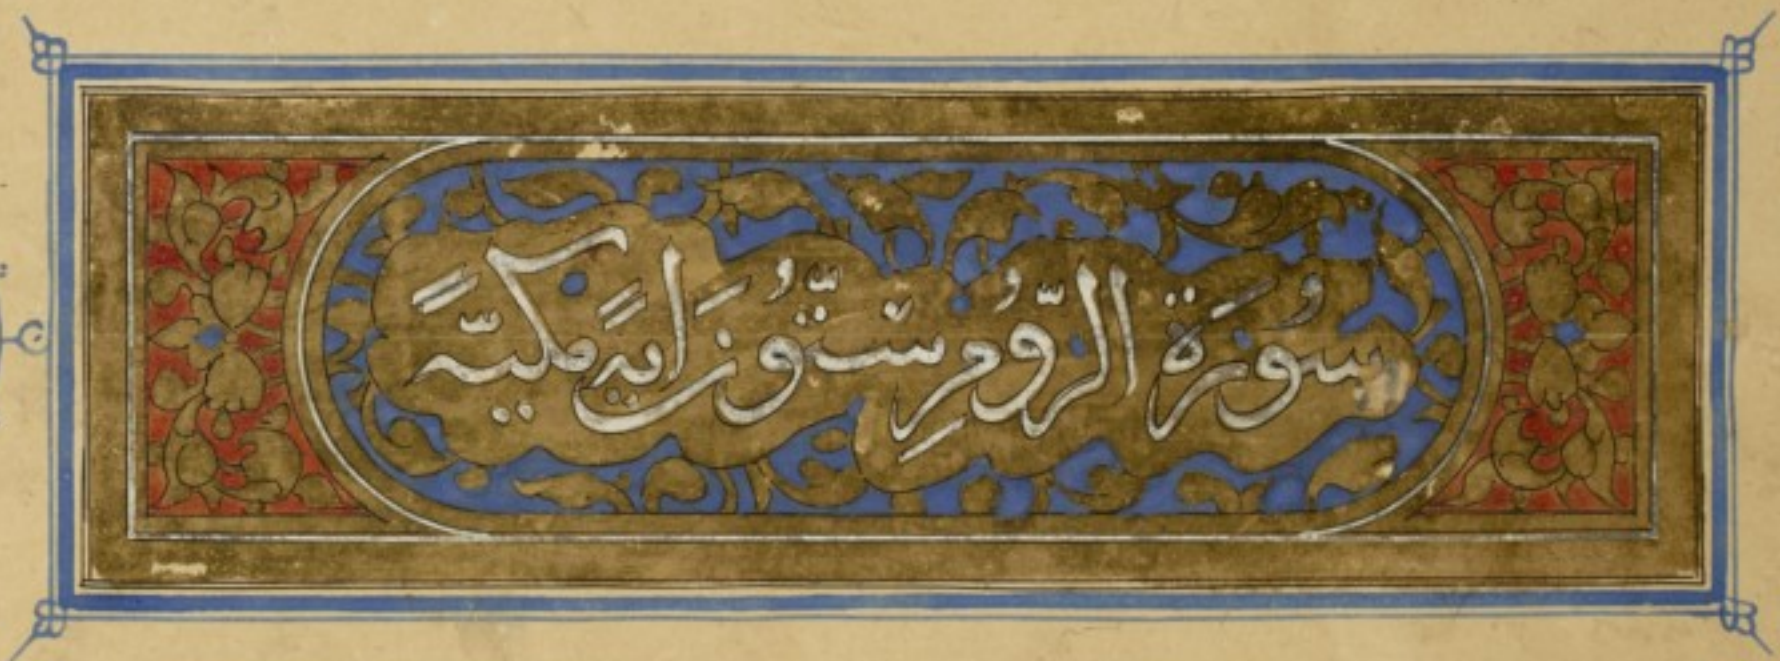 سُورَةُ الرُّومِ سِتُّونَ اٰيَةً مَكِّيَّةً